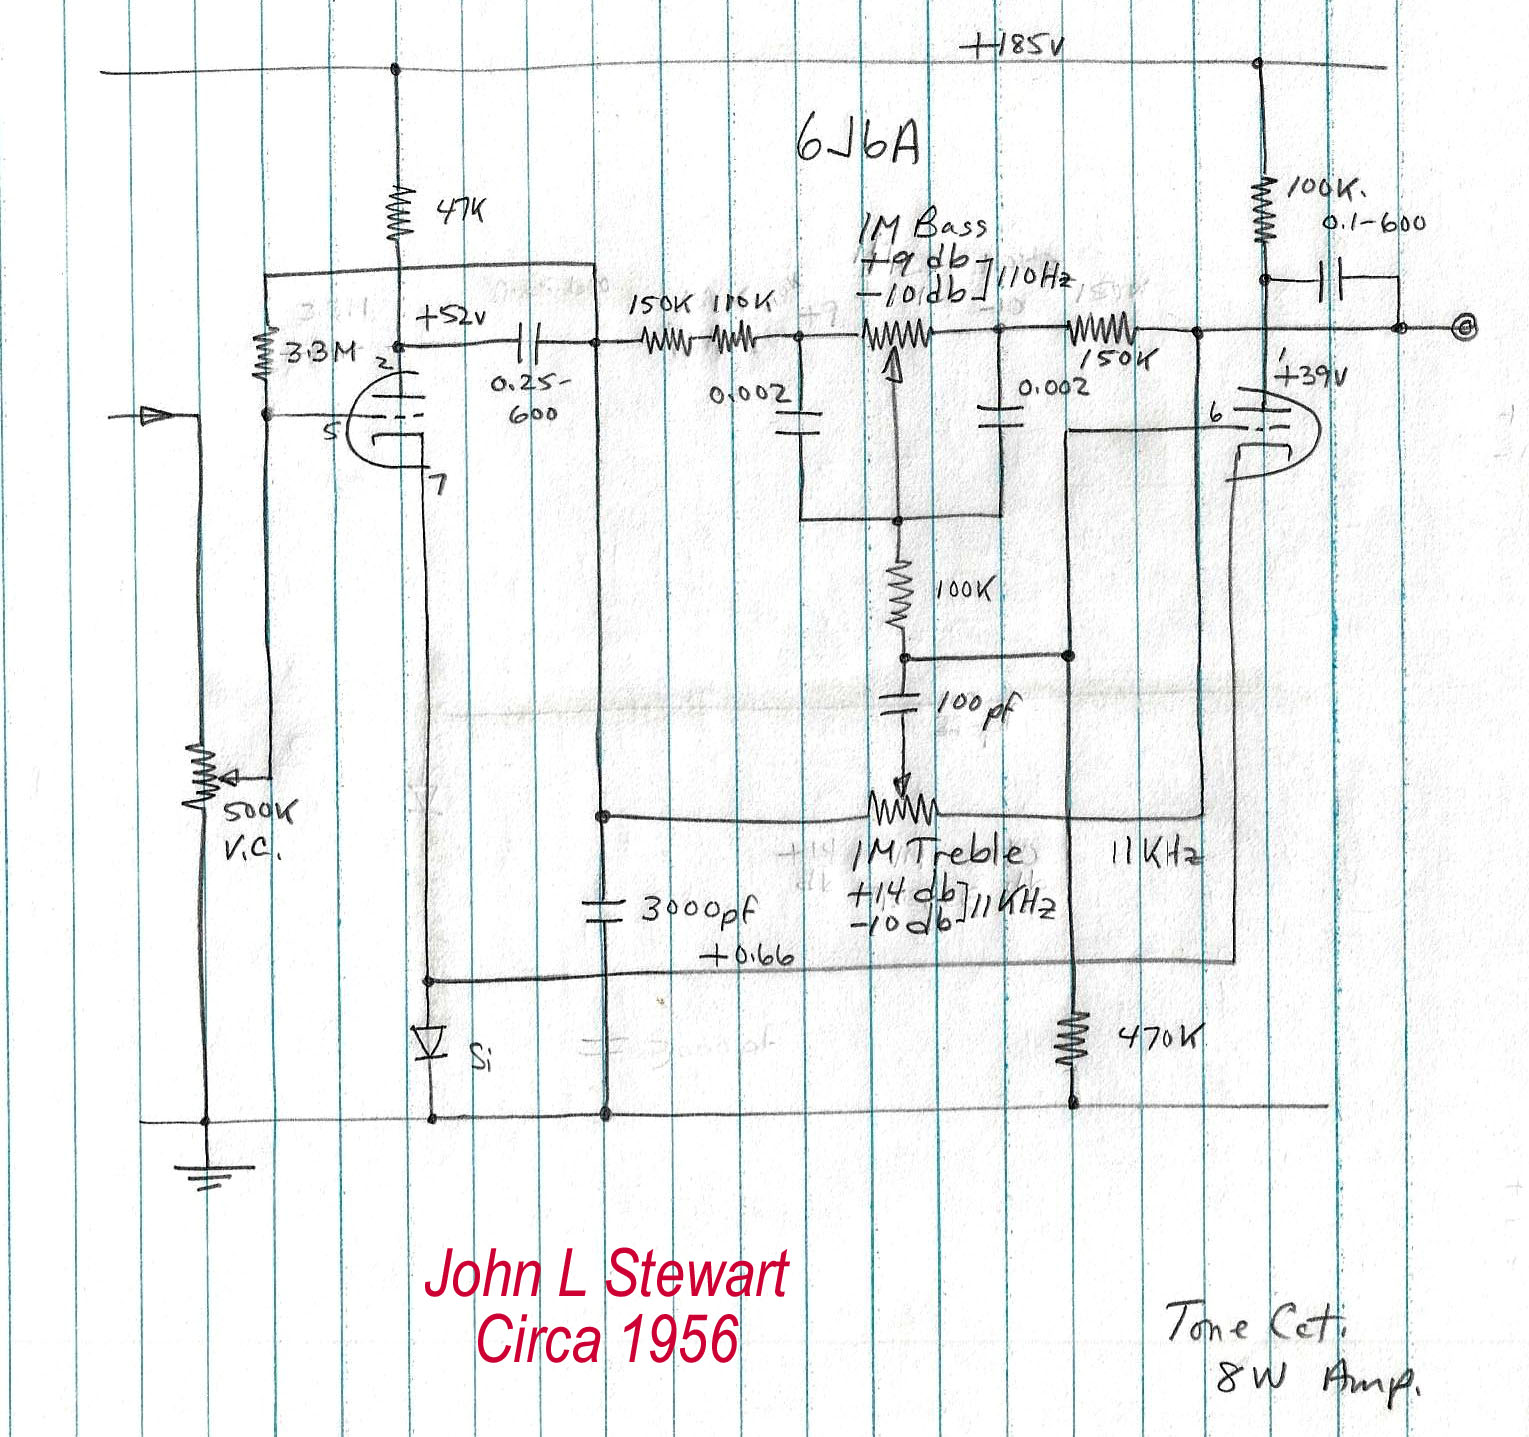 +185V
6J6A
47K
100K.
0.1-600
1M Bass
+9 db
-10 db
110Hz
+52V
150K
110K
3.3M
2
0.25-
600
0.002
0.002
150K
1
+39V
5
6
7
100K
100pf
500K
V.C.
1M Treble
+14 db
-10 db
11KHz
11KHz
3000pf
+0.66
Si
470K
John L Stewart
Circa 1956
Tone Cct.
8W Amp.